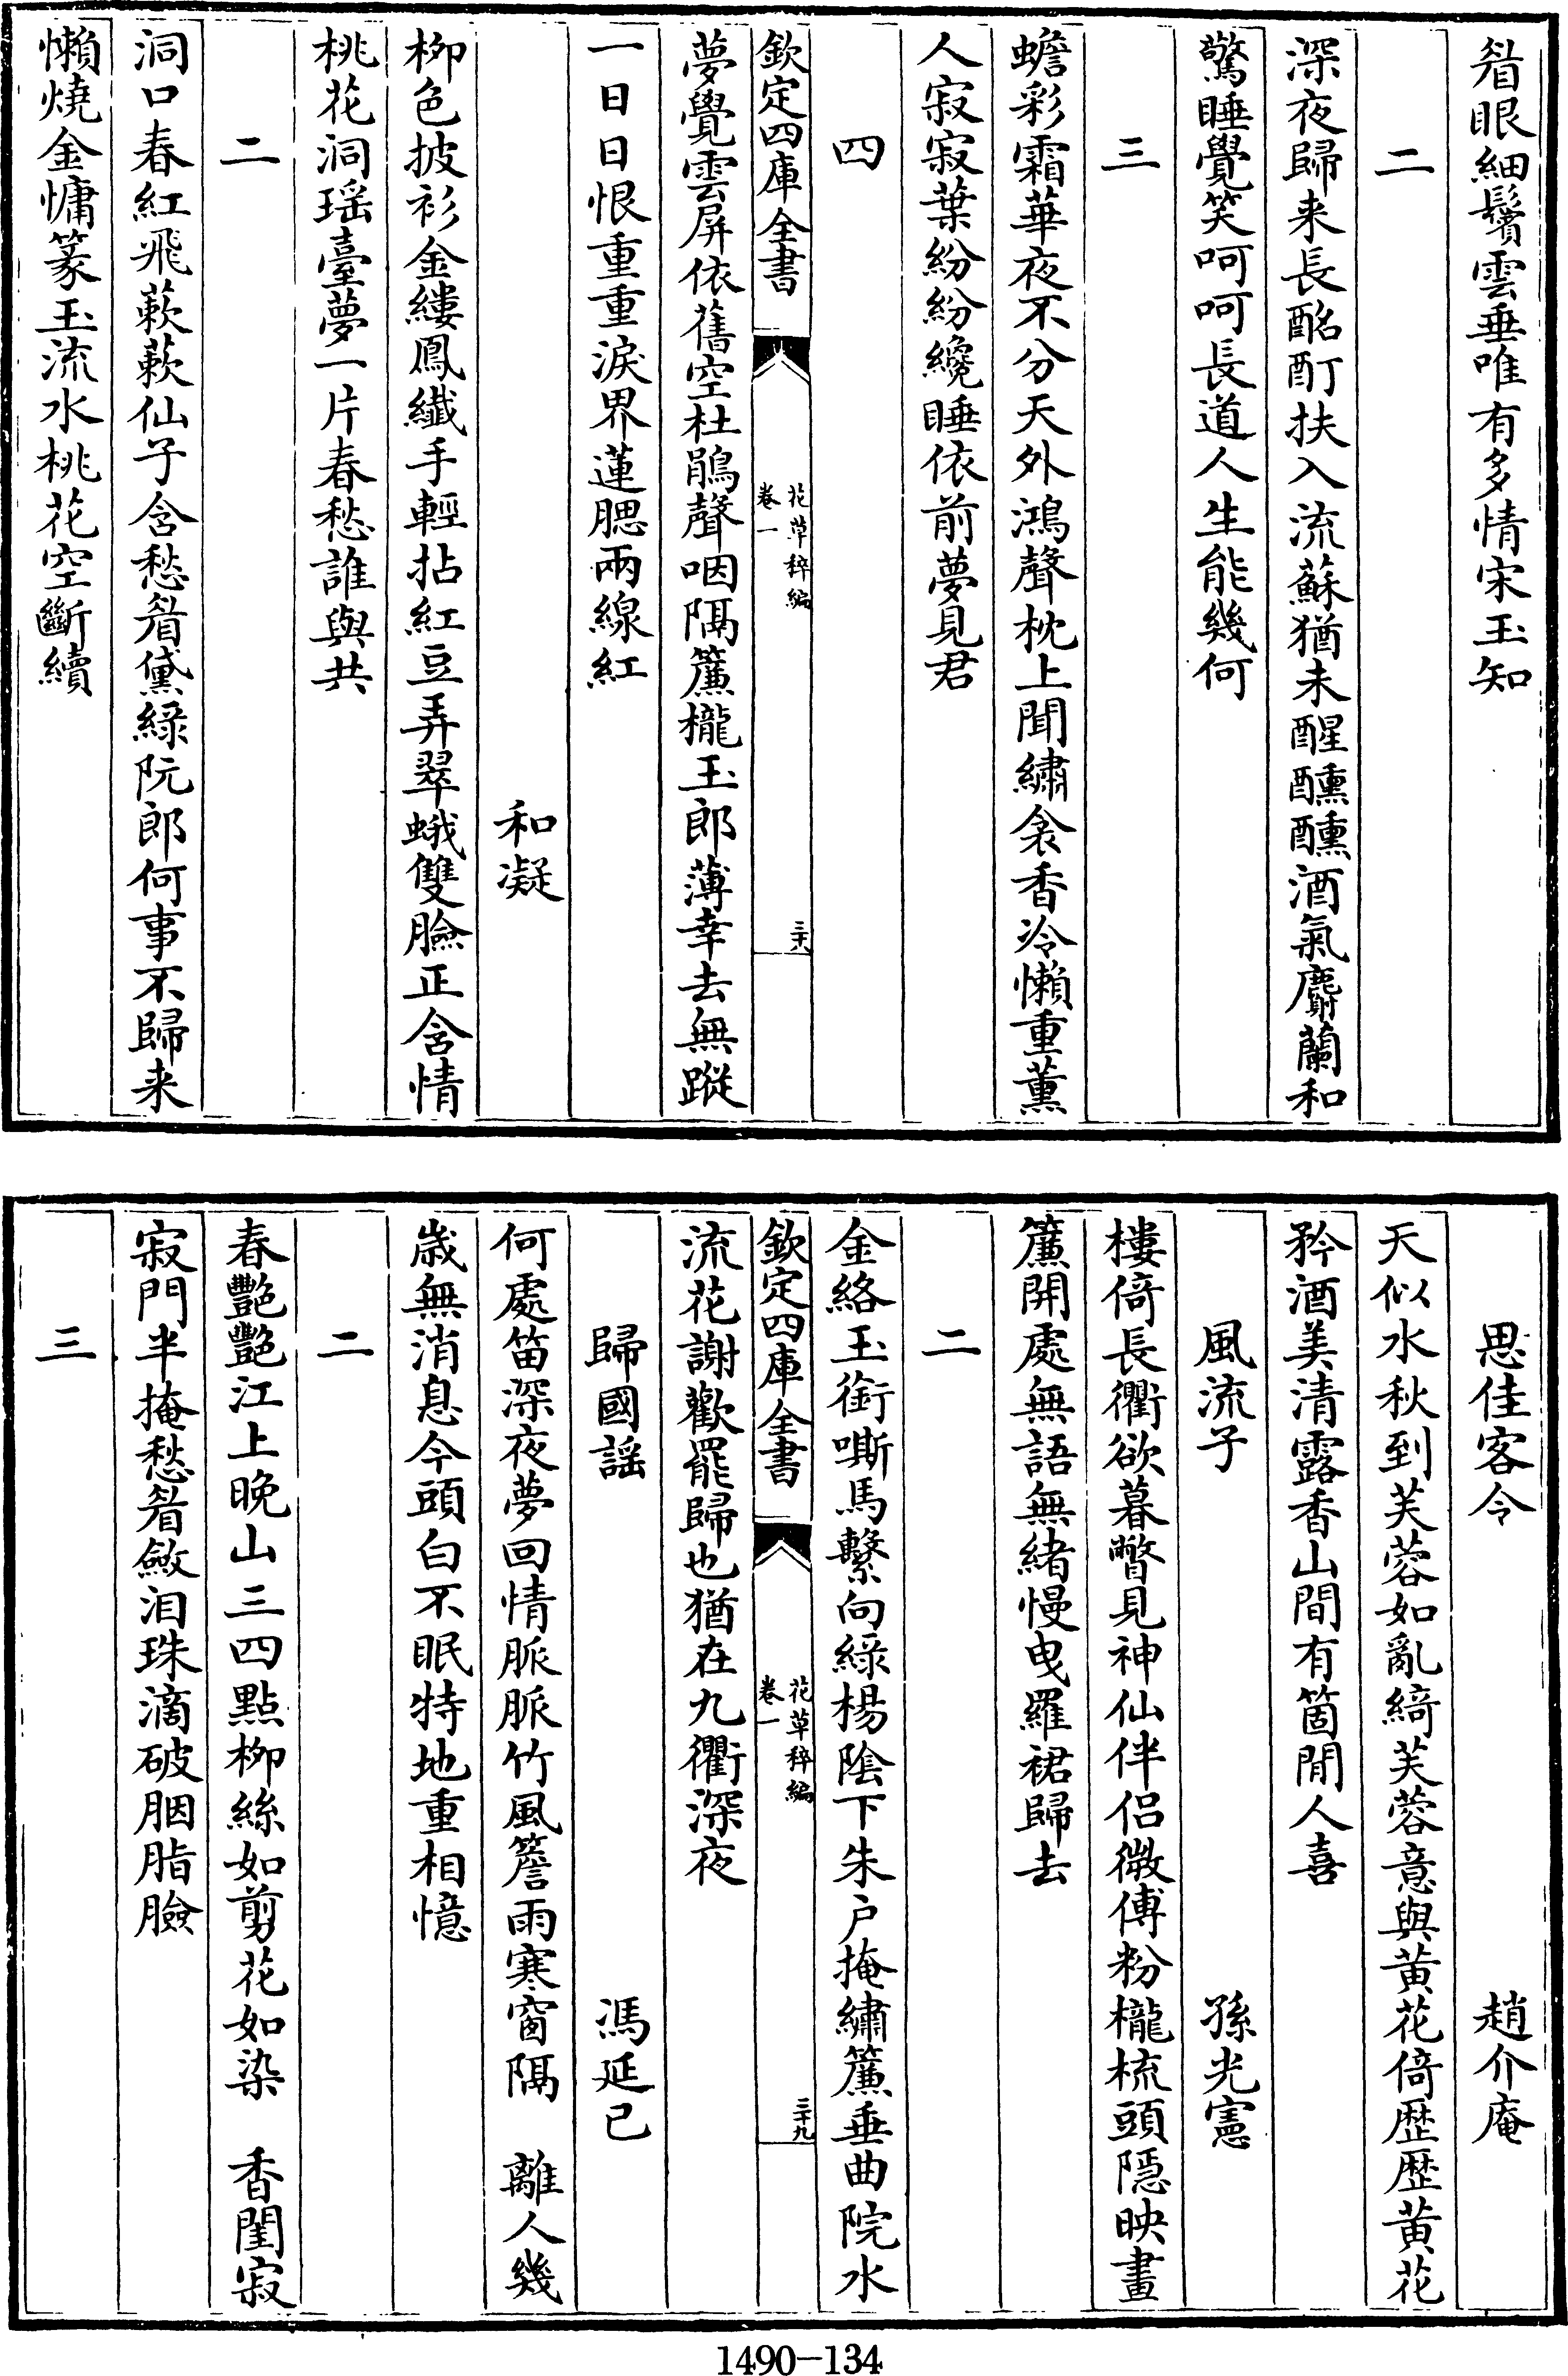 眉眼細鬢雲垂唯有多情宋玉知
二
深夜歸来長酩酊扶入流蘇猶未醒醺醺酒氣麝蘭和
驚睡覺笑呵呵長道人生能幾何
三
蟾彩霜華夜不分天外鴻聲枕上聞繡衾香冷懶重薰
人寂寂葉紛紛纔睡依前夢見君
四
欽定四庫全書
花草稡編
卷一
三十八
夢覺雲屏依舊空杜鵑聲咽隔簾櫳玉郎薄幸去無蹤
一日日恨重重淚界蓮腮兩線紅
和凝
柳色披衫金縷鳳纖手輕拈紅豆弄翠蛾雙臉正含情
桃花洞瑶臺夢一片春愁誰與共
二
洞口春紅飛蔌蔌仙子含愁眉黛緑阮郎何事不歸来
懶燒金慵篆玉流水桃花空斷續
思佳客令
趙介庵
天似水秋到芙蓉如亂綺芙蓉意與黄花倚歷歷黄花
矜酒美清露香山間有箇閒人喜
風流子
孫光憲
樓倚長衢欲暮瞥見神仙伴侣微傅粉櫳梳頭隱映畫
簾開處無語無緒慢曳羅裙歸去
二
金絡玉銜嘶馬繫向緑楊陰下朱户掩繡簾垂曲院水
欽定四庫全書
花草稡編
卷一
三十九
流花謝歡罷歸也猶在九衢深夜
歸國謡
馮延已
何處笛深夜夢回情脈脈竹風簷雨寒窗隔　離人幾
歲無消息今頭白不眠特地重相憶
二
春艷艷江上晚山三四點柳絲如剪花如染　香閨寂
寂門半掩愁眉斂泪珠滴破胭脂臉
三
1490-134